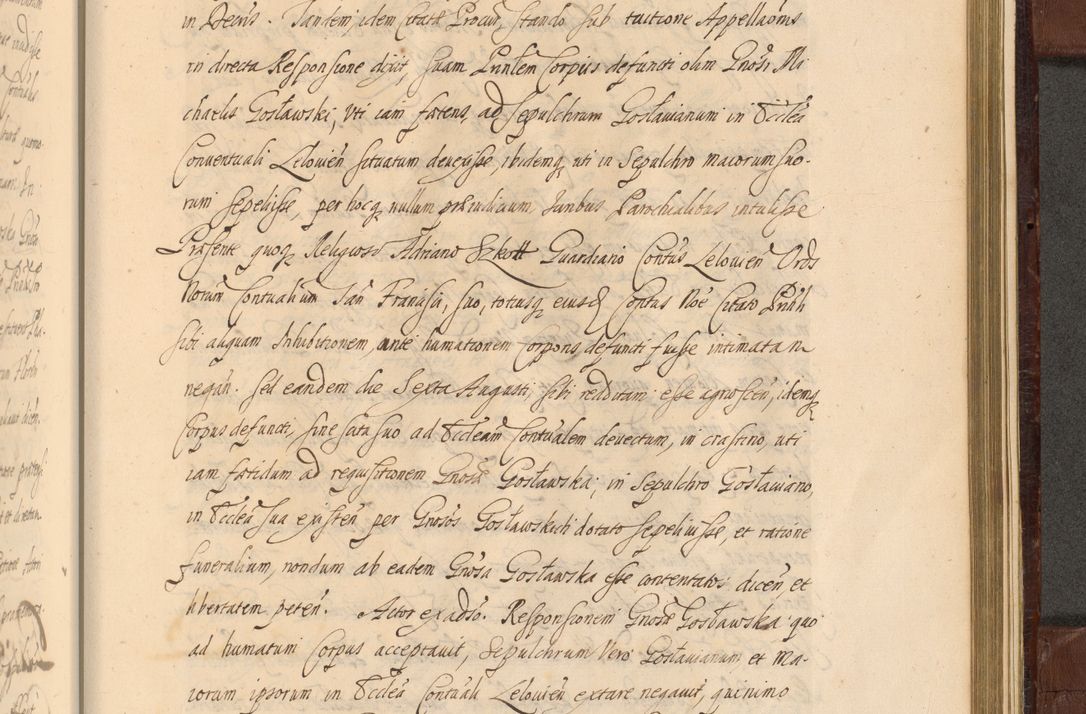 in Decis. Tandem idem Citatæ Procur, stando sub tuitione Appellaõnis
in directa Responsione dixit, suam Prinlem Corpus defuncti olim Gnosi Mi
chaelis Gosławski, uti iam fætens, ad Sepulchrum Gosłavianum in Eccleã
Conventuali Leloviẽn situatum devexisse, ibidemq, uti in Sepulchro maiorum suo-
rum sepeliisse, per hocq nullum præiudicium Iuribus Parochialibus intulisse
Præsente quoq Religioso Adriano Szkott Guardiano Contus Leloviẽn Ords
Norum Contualium San Francisci, suo, totiusq eiusd Contus Noe Citato
sibi aliquam Inhibitionem, ante humationem Corporis defuncti fuisse intimatam
negań. Sed eandem die Sexta Augusti, sibi redditam esse agnoscen, idemq
Corpus defuncti, sine scitu suo ad Eccleam Contualem devectum, in crastino, uti
iam fætidum ad requisitionem Gnosæ Gosławska, in Sepulchro Gosłaviano,
in Eccleã sua existen per Gnosos Gosławskich dotato sepelivisse, et ratione
funeralium, nondum ab eadem Gnosa Gosławska esse contentatos dicen, et
libertatem peten. Actor ex adso. Responsionem Gnosæ Gosławska quo
ad humatum Corpus acceptavit, Sepulchrum vero Gosłavianum et Ma-
iorum ipsorum in Eccleã Contuali Leloviẽn extare negavit, quinimo